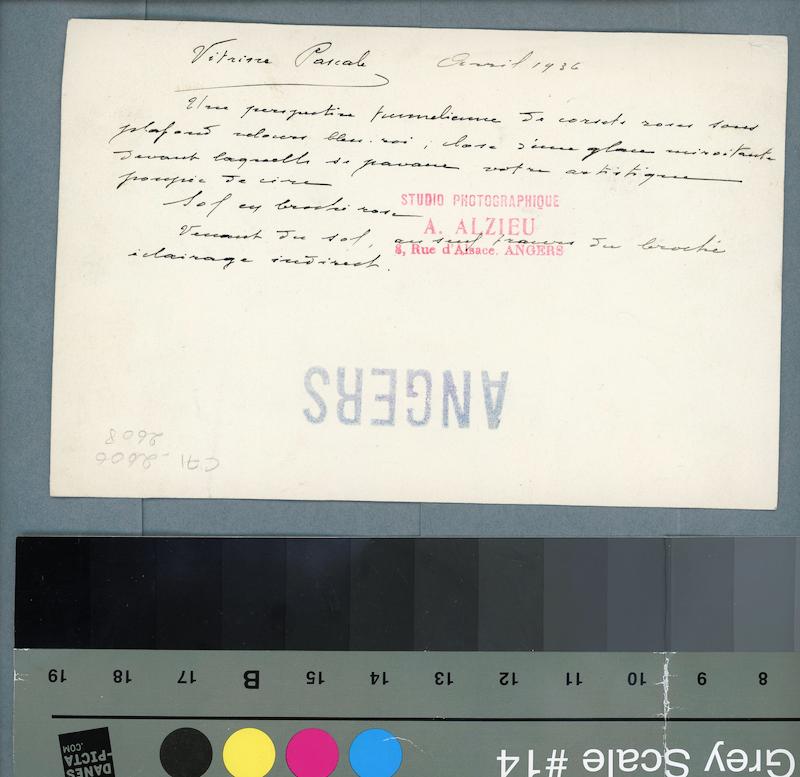 Vitrine Pascale Avril 1936
Une perspective tunnelienne de corsets roses sous
plafond velours bleu-roi ; close d'une glace miroitante
devant laquelle se pavane votre artistique
poupée de cire
Sol en broché rose
STUDIO PHOTOGRAPHIQUE
A. ALZIEU
8, Rue d'Alsace. ANGERS
Venant du sol, au travers du broché
éclairage indirect.
ANGERS
2608
CA1-2606
19 18 17 B 15 14 13 12 11 10 9 8
DANES
-PICTA
.COM
Grey Scale #14